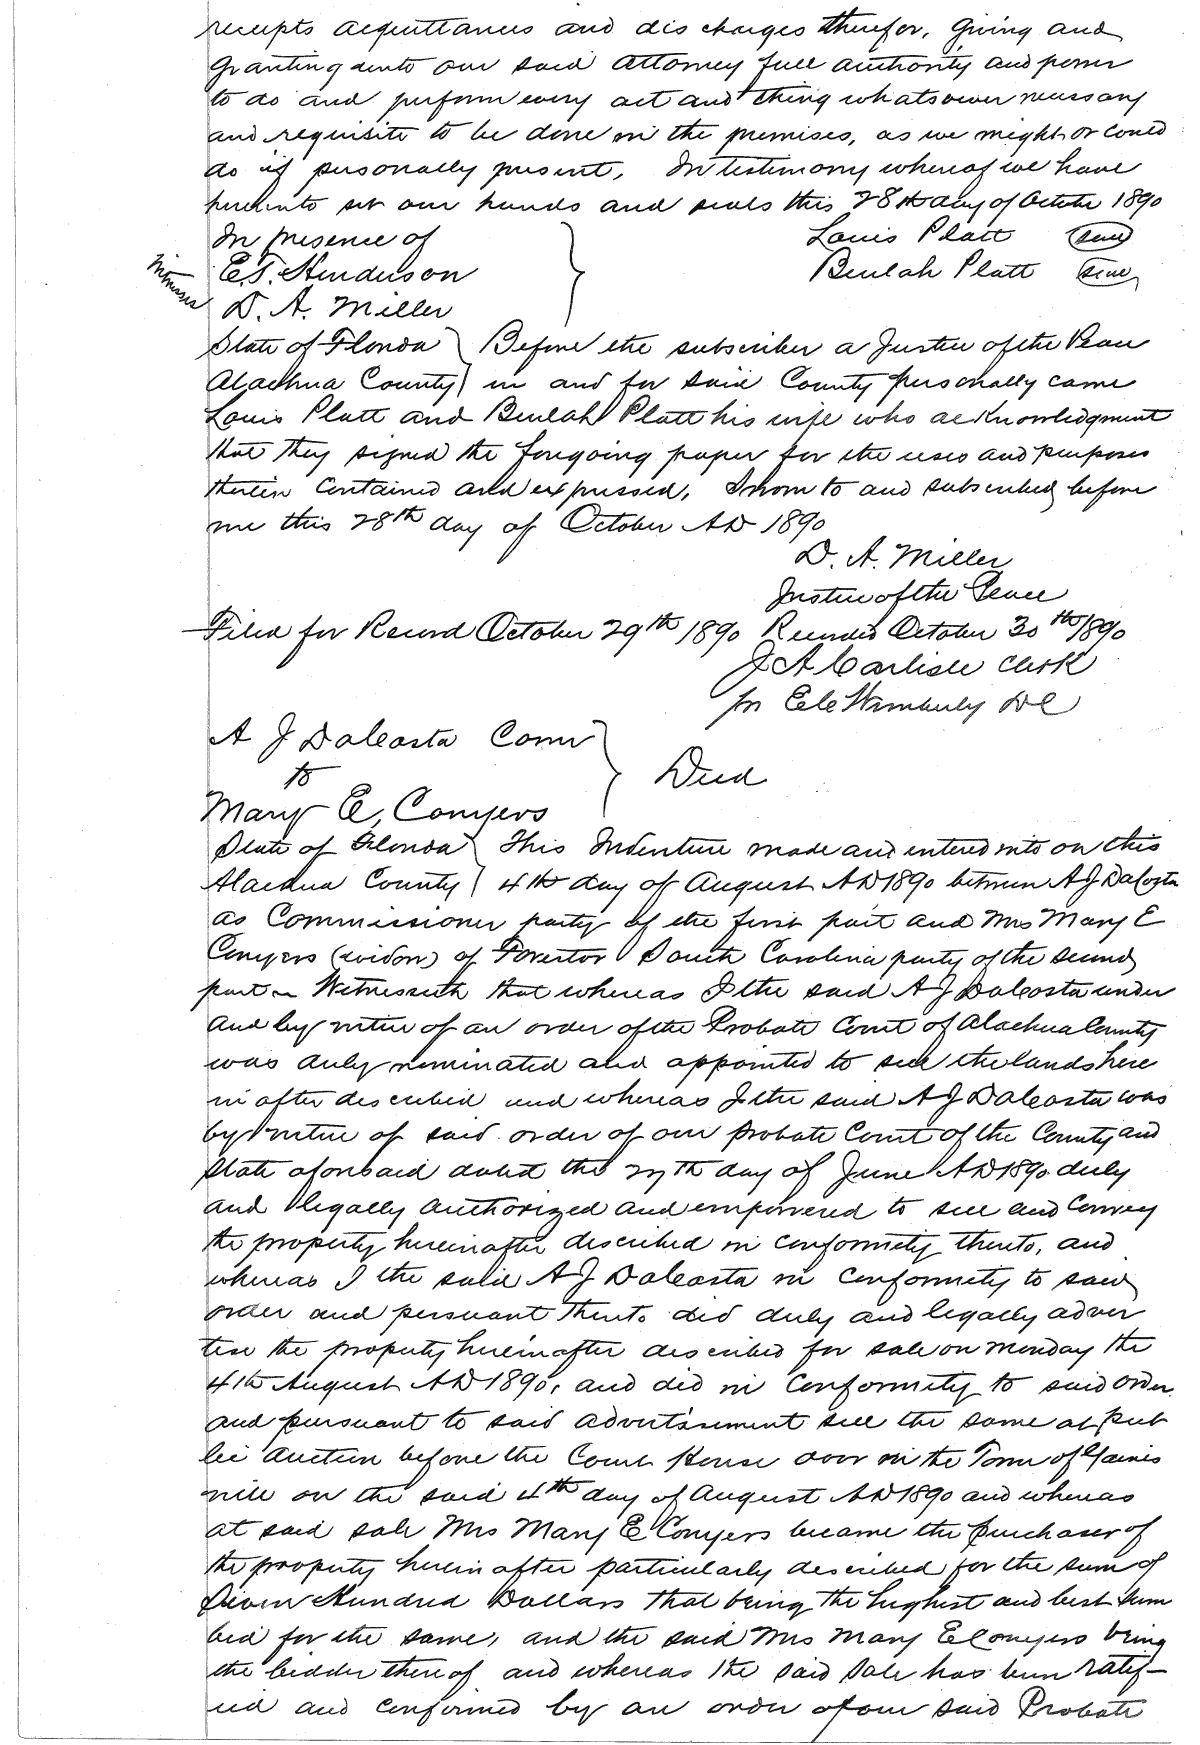 receipts acquittances and discharges therefor, Giving and
Granting unto our said Attorney full authority and power
to do and perform every act and thing whatsoever necessary
and requisite to be done in the premises, as we might or could
do if personally present, In testimony whereof we have
hereunto set our hands and seals this 28th day of October 1890
In presence of } Louis Platt (seal)
Witnesses E.T. Henderson Beulah Platt (seal)
D. A. Miller
State of Florida } Before the subscriber a Justice of the Peace
Alachua County } in and for said County personally came
Louis Platt and Beulah Platt his wife who acknowledgment
that they signed the foregoing paper for the uses and purposes
therein contained and expressed, Sworn to and subscribed before
me this 28th day of October AD 1890
D. A. Miller
Justice of the Peace
Filed for Record October 29th 1890 Recorded October 30th 1890
J A Carlisle Clerk
pr Wimberly DC
A J DaCosta Comr }
to } Deed
Mary E, Conyers
State of Florida } This Indenture made and entered into on this
Alachua County } 4th day of August AD 1890 between A J DaCosta
as Commissioner party of the first part and Mrs Mary E
Conyers (widow) of South Carolina party of the second
part Witnesseth that whereas I the said A J DaCosta under
and by virtue of an order of the Probate Court of Alachua County
was duly nominated and appointed to sell the lands here
in after described and whereas I the said A J DaCosta was
by virtue of said order of our Probate Court of the County and
State aforesaid dated the 27th day of June AD 1890 duly
and legally authorized and empowered to sell and Convey
the property hereinafter described in conformity thereto, and
whereas I the said A J DaCosta in conformity to said
order and persuant thereto did duly and legally adver
tise the property hereinafter described for sale on Monday the
4th August AD 1890, and did in conformity to said order
and persuant to said advertisement sell the same at pub
lic auction before the Court House door in the Town of Gaines
ville on the said 4th day of August AD 1890 and whereas
at said sale Mrs Mary E Conyers became the purchaser of
the property herein after particularly described for the sum of
Seven Hundred Dollars that being the highest and best sum
bid for the same, and the said Mrs Mary E Conyers being
the bidder thereof and whereas the said sale has been ratif-
ied and confirmed by an order of our said Probate